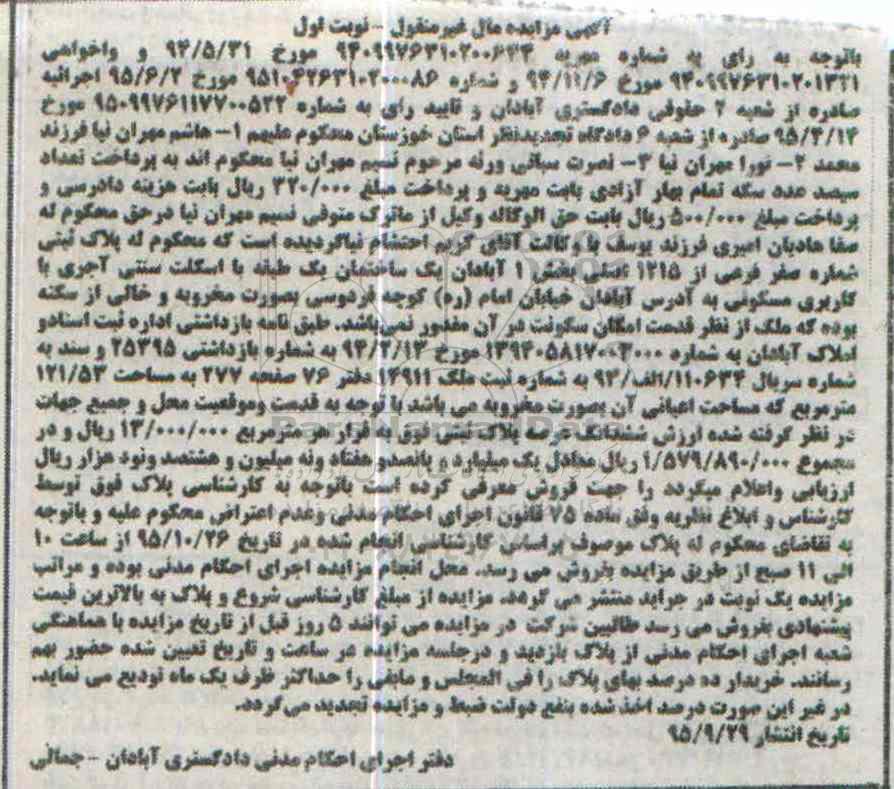 آگهی مزایده مال غیرمنقول - نوبت اول
باتوجه به رای به شماره مهریه ۹۴۰۹۹۷۶۳۱۰۲۰۰۶۳۴ مورخ ۹۴/۵/۳۱ و واخواهی
۹۴۰۹۹۷۶۳۱۰۲۰۱۳۲۱ مورخ ۹۴/۱۱/۶ و شماره ۹۵۱۰۴۲۶۳۱۰۲۰۰۰۸۶ مورخ ۹۵/۶/۲ اجرائیه
صادره از شعبه ۲ حقوقی دادگستری آبادان و تایید رای به شماره ۹۵۰۹۹۷۶۱۱۷۷۰۰۵۲۲ مورخ
۹۵/۳/۱۲ صادره از شعبه ۶ دادگاه تجدیدنظر استان خوزستان محکوم علیهم ۱- هاشم مهران نیا فرزند
محمد ۲- نورا مهران نیا ۳- نصرت سبائی ورثه مرحوم نسیم مهران نیا محکوم اند به پرداخت تعداد
سیصد عدد سکه تمام بهار آزادی بابت مهریه و پرداخت مبلغ ۳۲۰/۰۰۰ ریال بابت هزینه دادرسی و
پرداخت مبلغ ۵۰۰/۰۰۰ ریال بابت حق الوکاله وکیل از ماترک متوفی نسیم مهران نیا درحق محکوم له
صفا هادیان امیری فرزند یوسف با وکالت آقای کریم احتشام نیاگردیده است که محکوم له پلاک ثبتی
شماره صفر فرعی از ۱۲۱۵ اصلی بخش ۱ آبادان یک ساختمان یک طبقه با اسکلت سنتی آجری با
کاربری مسکونی به آدرس آبادان خیابان امام (ره) کوچه فردوسی بصورت مخروبه و خالی از سکنه
بوده که ملک از نظر قدمت امکان سکونت در آن مقدور نمی‌باشد. طبق نامه بازداشتی اداره ثبت اسنادو
املاک آبادان به شماره ۱۳۹۴۰۵۸۱۷۰۰۳۰۰۰ مورخ ۹۴/۲/۱۳ به شماره بازداشتی ۲۵۳۹۵ و سند به
شماره سریال ۱۱۰۶۳۴/الف/۹۳ به شماره ثبت ملک ۱۴۹۱۱ دفتر ۷۶ صفحه ۲۷۷ به مساحت ۱۲۱/۵۳
مترمربع که مساحت اعیانی آن بصورت مخروبه می باشد با توجه به قدمت وموقعیت محل و جمیع جهات
در نظر گرفته شده ارزش ششدانگ عرصه پلاک ثبتی فوق به قرار هر مترمربع ۱۳/۰۰۰/۰۰۰ ریال و در
مجموع ۱/۵۷۹/۸۹۰/۰۰۰ ریال معادل یک میلیارد و پانصدو هفتاد ونه میلیون و هشتصد ونود هزار ریال
ارزیابی واعلام میگردد را جهت فروش معرفی کرده است باتوجه به کارشناسی پلاک فوق توسط
کارشناس و ابلاغ نظریه وفق ماده ۷۵ قانون اجرای احکام مدنی وعدم اعتراض محکوم علیه و باتوجه
به تقاضای محکوم له پلاک موصوف براساس کارشناسی انجام شده در تاریخ ۹۵/۱۰/۲۶ از ساعت ۱۰
الی ۱۱ صبح از طریق مزایده بفروش می رسد. محل انجام مزایده اجرای احکام مدنی بوده و مراتب
مزایده یک نوبت در جراید منتشر می گردد. مزایده از مبلغ کارشناسی شروع و پلاک به بالاترین قیمت
پیشنهادی بفروش می رسد طالبین شرکت در مزایده می توانند ۵ روز قبل از تاریخ مزایده با هماهنگی
شعبه اجرای احکام مدنی از پلاک بازدید و درجلسه مزایده در ساعت و تاریخ تعیین شده حضور بهم
رسانند. خریدار ده درصد بهای پلاک را فی المجلس و مابقی را حداکثر ظرف یک ماه تودیع می نماید.
در غیر این صورت درصد اخذ شده بنفع دولت ضبط و مزایده تجدید می‌گردد.
تاریخ انتشار ۹۵/۹/۲۹
دفتر اجرای احکام مدنی دادگستری آبادان - جمالی